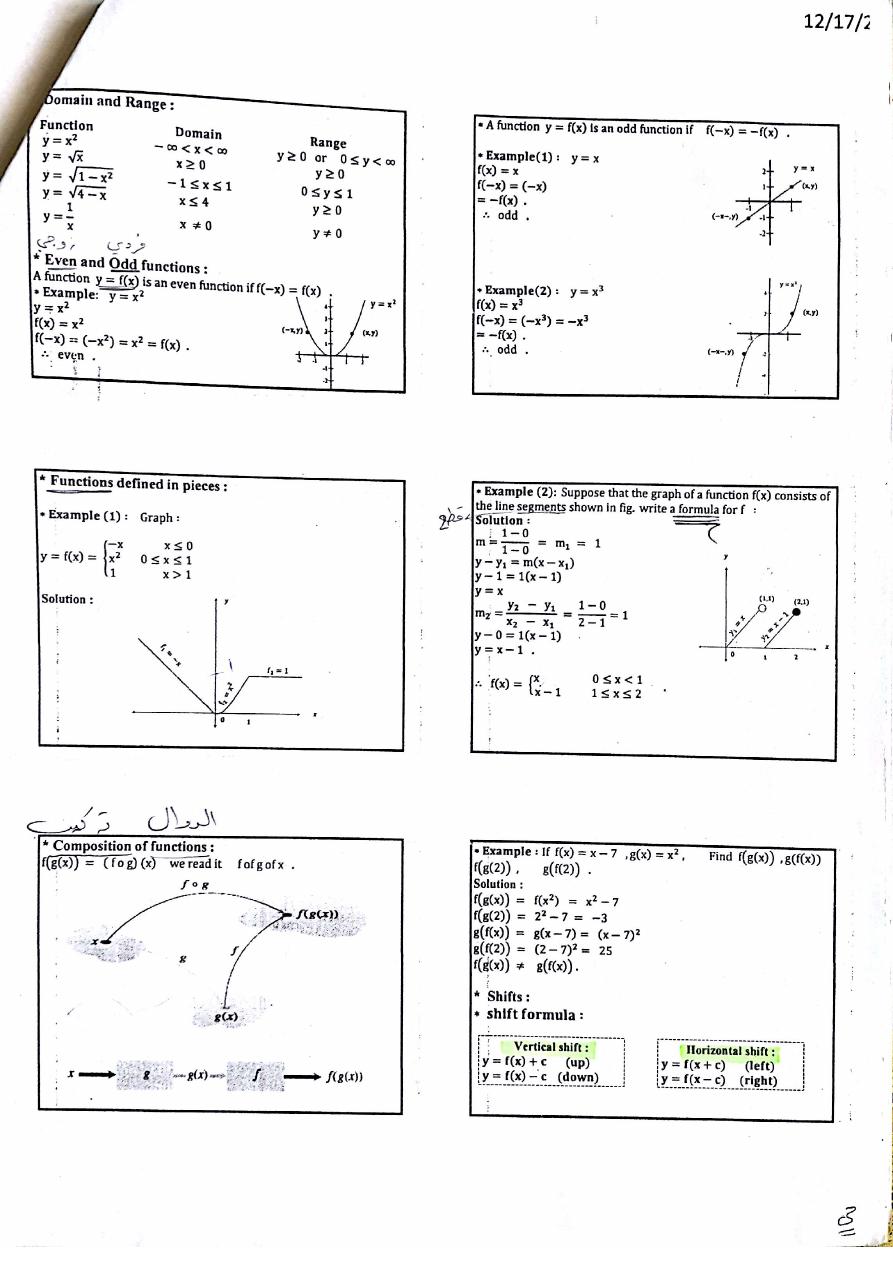 12/17/2
Domain and Range :
Function Domain Range
y = x² − ∞ < x < ∞ y ≥ 0 or 0 ≤ y < ∞
y = √x x ≥ 0 y ≥ 0
y = √1 − x² − 1 ≤ x ≤ 1 0 ≤ y ≤ 1
y = √4 − x x ≤ 4 y ≥ 0
y = 1/x x ≠ 0 y ≠ 0
زوجي فردي
* Even and Odd functions :
A function y = f(x) is an even function if f(−x) = f(x) .
• Example: y = x²
y = x²
f(x) = x²
f(−x) = (−x²) = x² = f(x) .
∴ even .
y = x²
(−x,y) (x,y)
• A function y = f(x) is an odd function if f(−x) = −f(x) .
• Example(1) : y = x
f(x) = x
f(−x) = (−x)
= −f(x) .
∴ odd .
y = x
(x,y)
(−x−,y)
• Example(2) : y = x³
f(x) = x³
f(−x) = (−x³) = −x³
= −f(x) .
∴ odd .
y = x³
(x,y)
(−x−,y)
* Functions defined in pieces :
• Example (1) : Graph :
y = f(x) = { −x x ≤ 0
x² 0 ≤ x ≤ 1
1 x > 1
Solution :
y
f₁ = −x
f₂ = x²
f₃ = 1
0 1 x
• Example (2): Suppose that the graph of a function f(x) consists of
the line segments shown in fig. write a formula for f :
قطع
Solution :
m = 1 − 0 / 1 − 0 = m₁ = 1
y − y₁ = m(x − x₁)
y − 1 = 1(x − 1)
y = x
m₂ = y₂ − y₁ / x₂ − x₁ = 1 − 0 / 2 − 1 = 1
y − 0 = 1(x − 1)
y = x − 1 .
∴ f(x) = { x 0 ≤ x < 1
x − 1 1 ≤ x ≤ 2
y
(1,1) (2,1)
y₁ = x y₂ = x − 1
0 1 2 x
تركيب الدوال
* Composition of functions :
f(g(x)) = (f o g) (x) we read it f of g of x .
f o g
x f(g(x))
g f
g(x)
x g g(x) f f(g(x))
• Example : If f(x) = x − 7 ,g(x) = x² , Find f(g(x)) ,g(f(x))
f(g(2)) , g(f(2)) .
Solution :
f(g(x)) = f(x²) = x² − 7
f(g(2)) = 2² − 7 = −3
g(f(x)) = g(x − 7) = (x − 7)²
g(f(2)) = (2 − 7)² = 25
f(g(x)) ≠ g(f(x)) .
* Shifts :
• shift formula :
Vertical shift :
y = f(x) + c (up)
y = f(x) − c (down)
Horizontal shift :
y = f(x + c) (left)
y = f(x − c) (right)